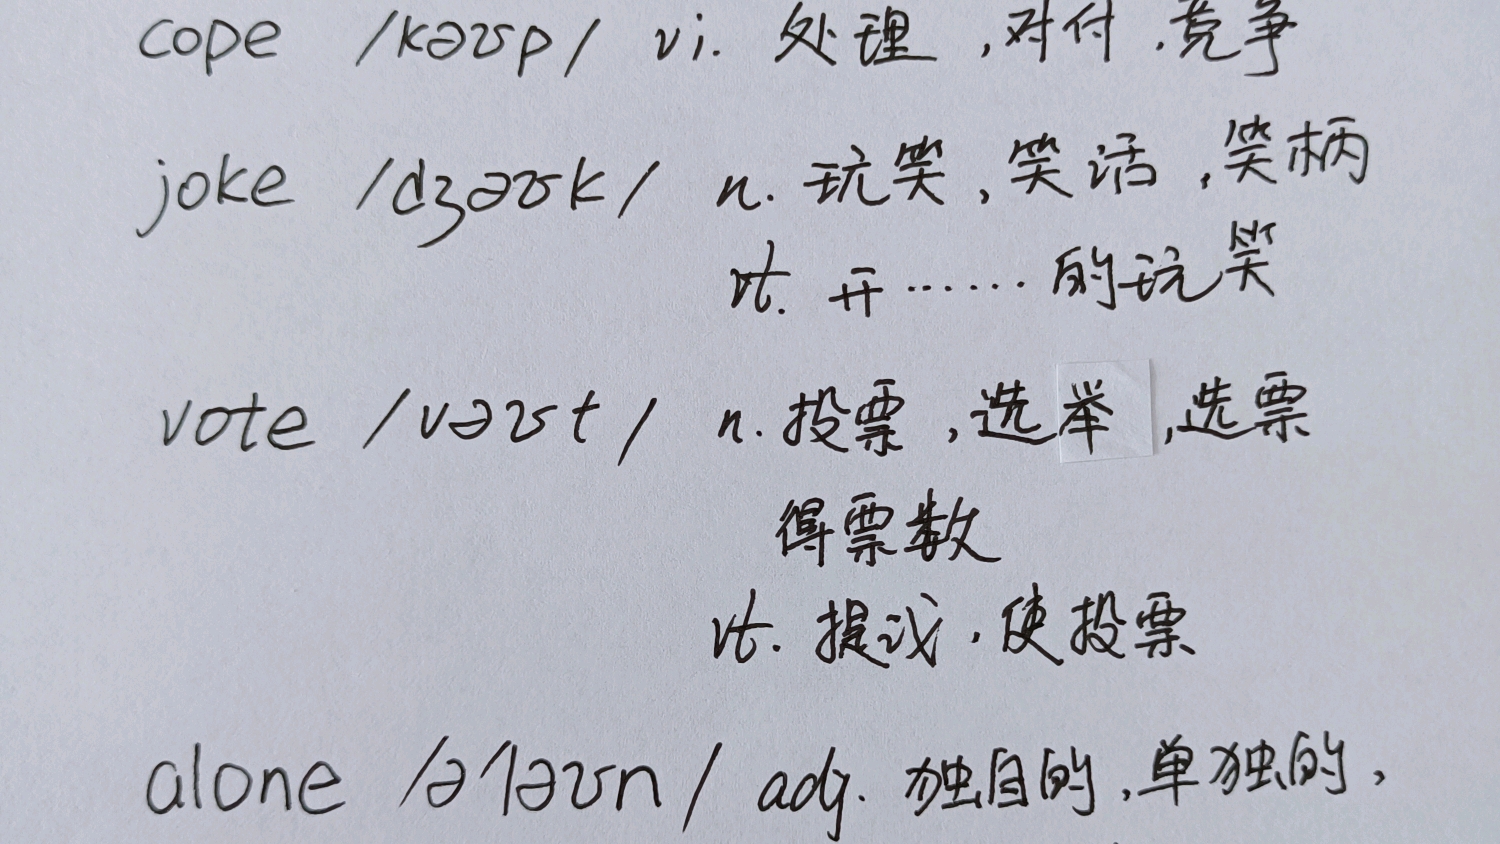 cope /kəʊp/ vi. 处理,对付,竞争
joke /dʒəʊk/ n. 玩笑,笑话,笑柄
vt. 开……的玩笑
vote /vəʊt/ n. 投票,选举,选票
得票数
vt. 提议,使投票
alone /əˈləʊn/ adj. 独自的,单独的,